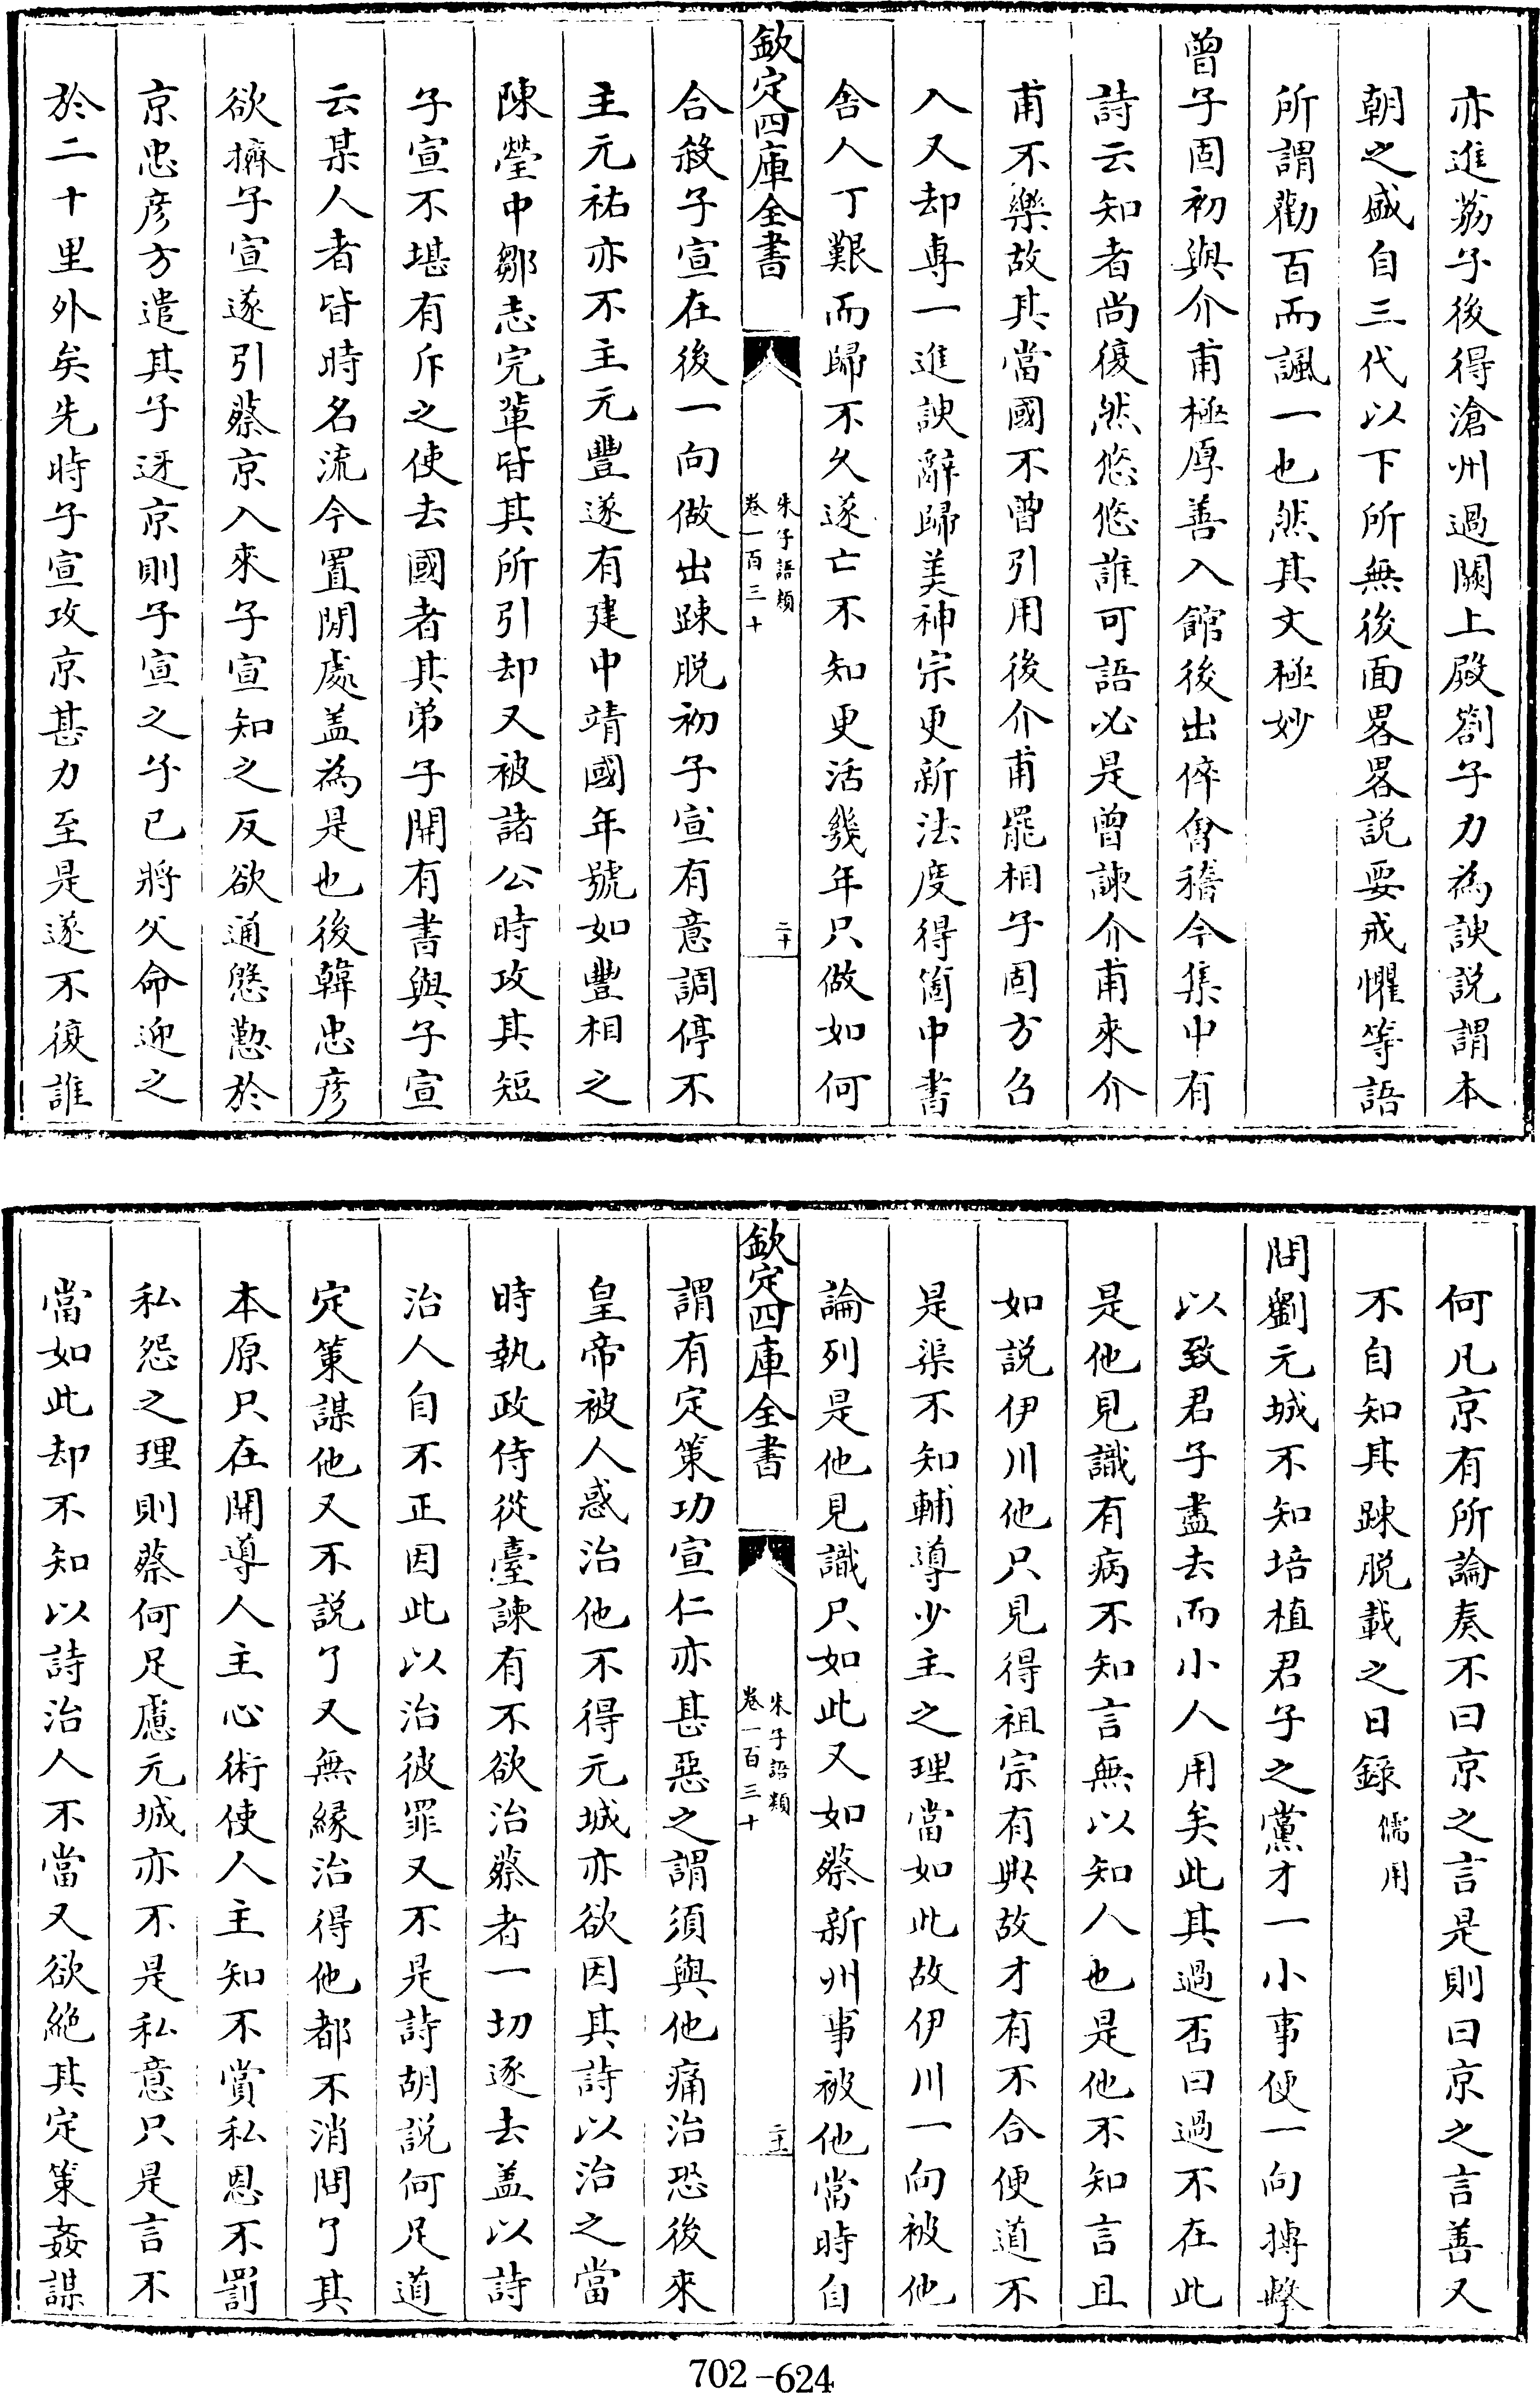 亦進荔子後得滄州過闕上殿劄子力為諛説謂本
朝之盛自三代以下所無後面畧畧説要戒懼等語
所謂勸百而諷一也然其文極妙
曾子固初與介甫極厚善入館後出倅會稽今集中有
詩云知者尚復然悠悠誰可語必是曾諫介甫來介
甫不樂故其當國不曾引用後介甫罷相子固方召
入又却專一進諛辭歸美神宗更新法度得箇中書
舍人丁艱而歸不久遂亡不知更活幾年只做如何
欽定四庫全書
朱子語類
卷一百三十
二十
合殺子宣在後一向做出踈脱初子宣有意調停不
主元祐亦不主元豐遂有建中靖國年號如豐相之
陳瑩中鄒志完輩皆其所引却又被諸公時攻其短
子宣不堪有斥之使去國者其弟子開有書與子宣
云某人者皆時名流今置閒處盖為是也後韓忠彦
欲擠子宣遂引蔡京入來子宣知之反欲通慇懃於
京忠彦方遣其子迓京則子宣之子已將父命迎之
於二十里外矣先時子宣攻京甚力至是遂不復誰
何凡京有所論奏不曰京之言是則曰京之言善又
不自知其踈脱載之日錄儒用
問劉元城不知培植君子之黨才一小事便一向搏擊
以致君子盡去而小人用矣此其過否曰過不在此
是他見識有病不知言無以知人也是他不知言且
如説伊川他只見得祖宗有典故才有不合便道不
是渠不知輔導少主之理當如此故伊川一向被他
論列是他見識只如此又如蔡新州事被他當時自
欽定四庫全書
朱子語類
卷一百三十
二十一
謂有定策功宣仁亦甚惡之謂須與他痛治恐後來
皇帝被人惑治他不得元城亦欲因其詩以治之當
時執政侍從臺諫有不欲治蔡者一切逐去盖以詩
治人自不正因此以治彼罪又不是詩胡説何足道
定策謀他又不説了又無縁治得他都不消問了其
本原只在開導人主心術使人主知不賞私恩不罰
私怨之理則蔡何足慮元城亦不是私意只是言不
當如此却不知以詩治人不當又欲絶其定策姦謀
702-624